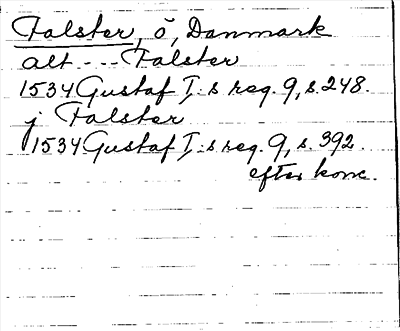 Falster, ö, Danmark
alt --- Falster
1534 Gustaf I:s reg. 9, s. 248.
j Falster
1534 Gustaf I:s reg. 9, s. 392.
efter konc.